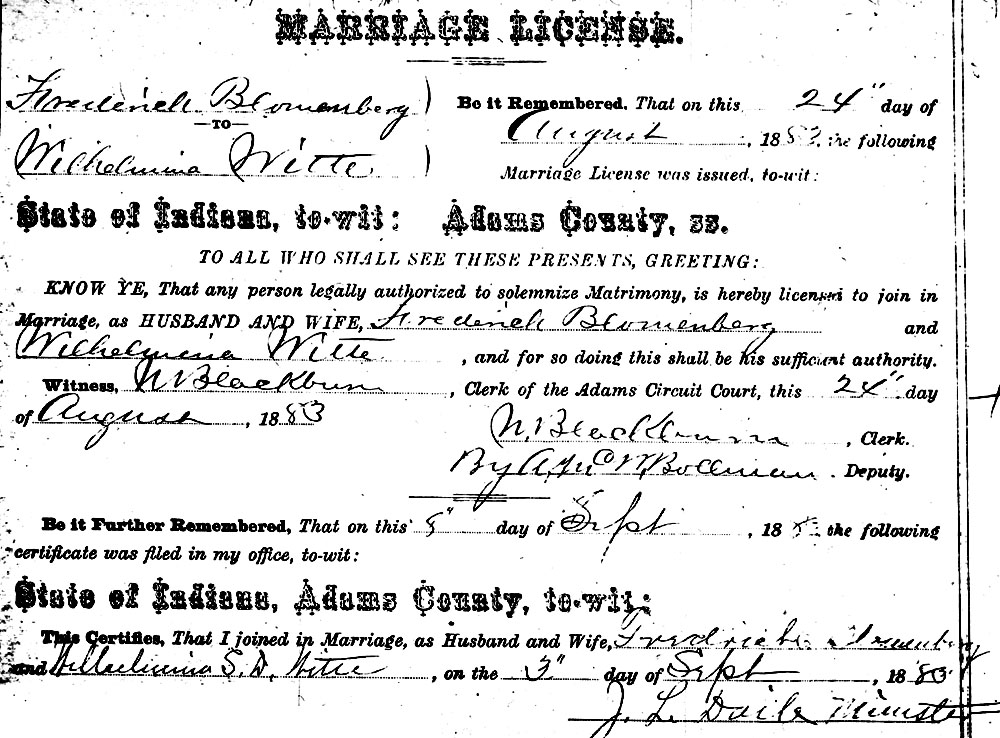 MARRIAGE LICENSE.
Frederich Blomenberg
—TO—
Wilhelmina Witte.
Be it Remembered, That on this 24" day of
August, 1883, the following
Marriage License was issued, to-wit:
State of Indiana, to-wit: Adams County, ss.
TO ALL WHO SHALL SEE THESE PRESENTS, GREETING:
KNOW YE, That any person legally authorized to solemnize Matrimony, is hereby licensed to join in
Marriage, as HUSBAND AND WIFE, Frederich Blomenberg and
Wilhelmina Witte, and for so doing this shall be his sufficient authority.
Witness, N Blackburn, Clerk of the Adams Circuit Court, this 24" day
of August, 1883
N. Blackburn, Clerk.
By Bollman. Deputy.
Be it Further Remembered, That on this day of Sept, 18 the following
certificate was filed in my office, to-wit:
State of Indiana, Adams County, to-wit:
This Certifies, That I joined in Marriage, as Husband and Wife, Fredrich
and Wilhelmina S. D. Witte, on the 3" day of Sept, 1883
J. L. Minister